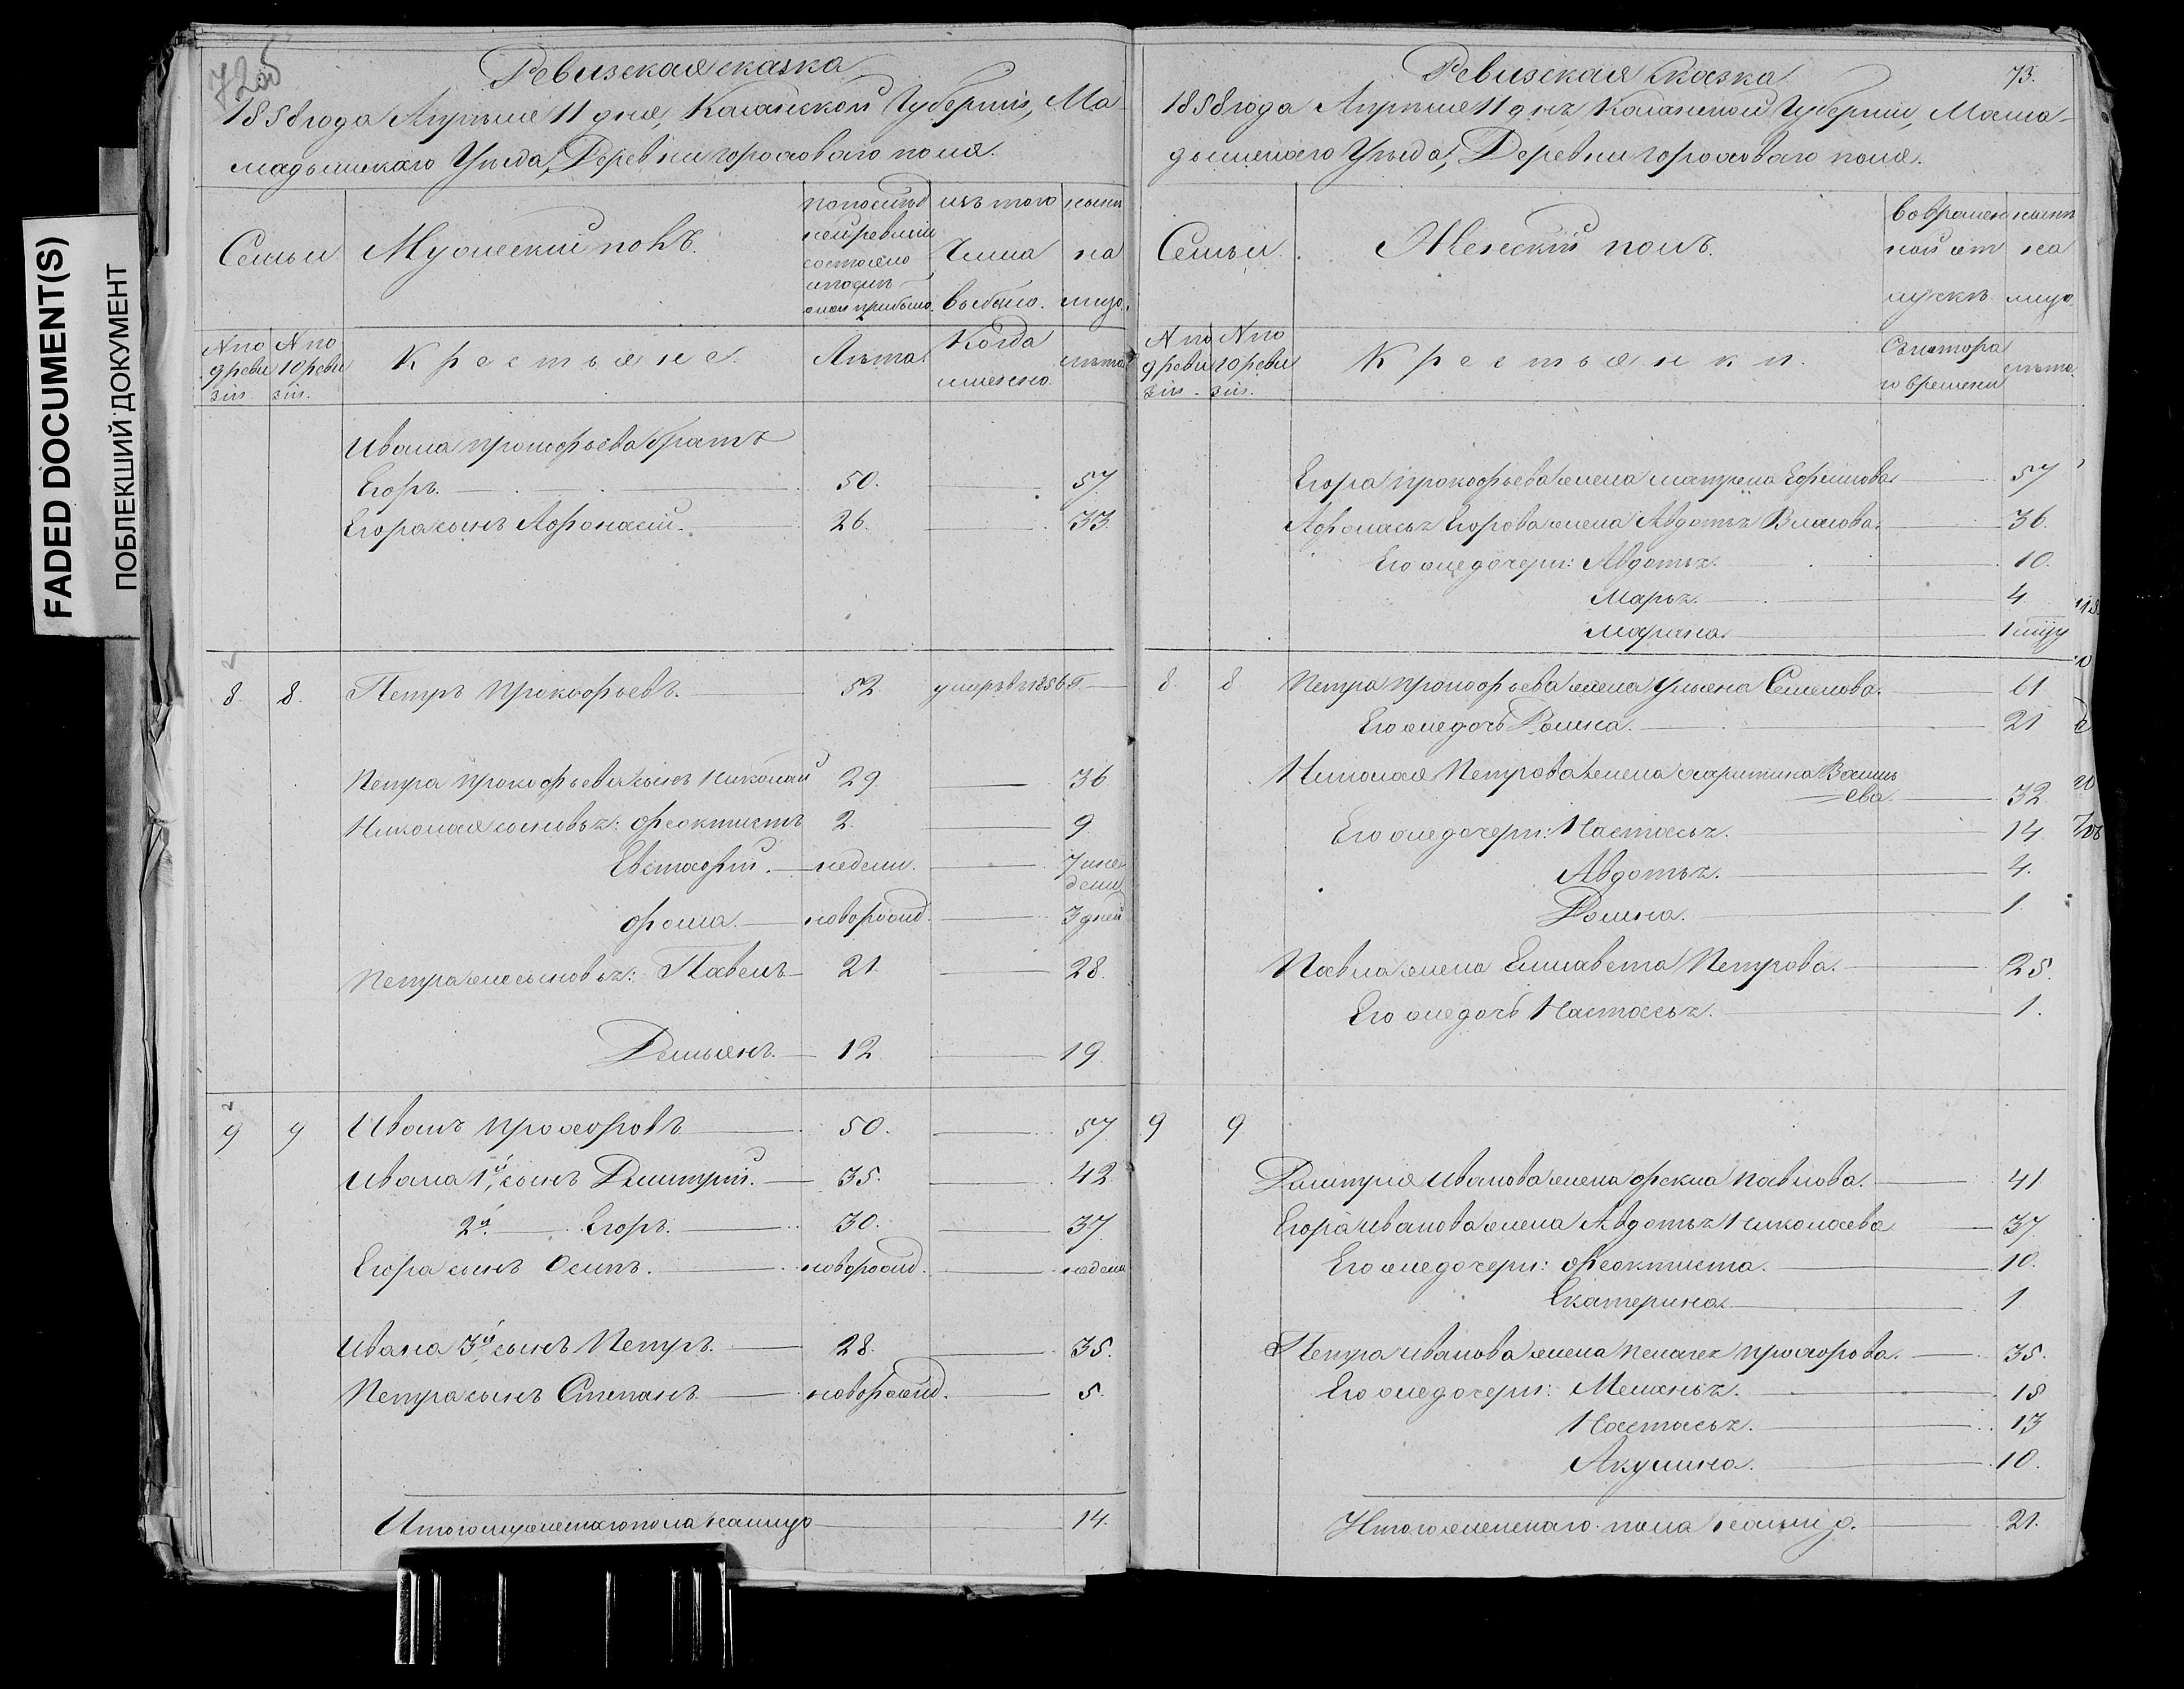 FADED DOCUMENT(S)
ПОБЛЕКШИЙ ДОКУМЕНТ
72об
Ревизская сказка
1858 года Апрѣля 11 дня, Казанской Губерніи, Ма-
мадышскаго Уѣзда, Деревни горохового поля.
Семьи
Мужескій полъ.
по послѣд
ней ревизіи
состояло
и послѣ
оной прибыло.
изъ того
числа
выбыло.
нынѣ
на
лицо.
№ по
9 реви
зіи.
№ по
10 реви
зіи.
Крестьяне.
Лѣта
Когда
именно
лѣта
Ивана прокофьева братъ
Егоръ. 50. 57
Егора сынъ Афонасій. 26. 33.
8. 8. Петръ Прокофьевъ. 52 умеръ въ 1856 г.
Петра Прокофьева сынъ Николай 29 36
Николая сыновья: Феоктистъ 2. 9
Евстафій. недели. 7 и не
дели
фома. новорожд. 3 дней
Петра же сыновья: Павелъ 21. 28.
Демьянъ. 12 19.
9 9 Иванъ Прохоровъ 50. 57
Ивана 1й, сынъ Дмитрій. 35. 42.
2й. Егоръ. 30. 37.
Егора сынъ Осипъ. новорожд. недели
Ивана 3й, сынъ Петръ. 28. 35.
Петра сынъ Степанъ. новорожд. 5.
Итого мужескаго пола на лицо 14.
73.
Ревизская Сказка
1858 года Апрѣля 11 дня Казанской Губерніи, Мама-
дышскаго Уѣзда, Деревни горохового поля.
Семьи.
Женскій полъ.
во времен
ной от
лучкѣ.
нынѣ
на
лицо
№ по
9 реви
зіи.
№ по
10 реви
зіи.
Крестьянки.
Съ котора
го времени
лѣта.
Егора прокофьева жена матрена Ефимова 57
Афонасья Егорова жена Авдотья Власова. 36.
Его же дочери: Авдотья. 10.
Марья. 4
Марина
8. 8 Петра Прокофьева жена Ульяна Семенова. 61
Его же дочь Домна. 21
Николая Петрова жена харитина Василь
ева. 32.
Его же дочери: Настасья. 14.
Авдотья. 4.
Домна. 1
Павла жена Елисавета Петрова. 25.
Его же дочь Настасья. 1.
9 9
Дмитрия Иванова жена фекла павлова. 41
Егора иванова жена Авдотья Николаева 37
Его же дочери: феоктиста. 10.
Екатерина. 1
Петра иванова жена пелагея прохорова. 35.
Его же дочери: Меланья. 18
Настасья. 13
Акулина. 10.
Итого женскаго пола на лицо. 21.